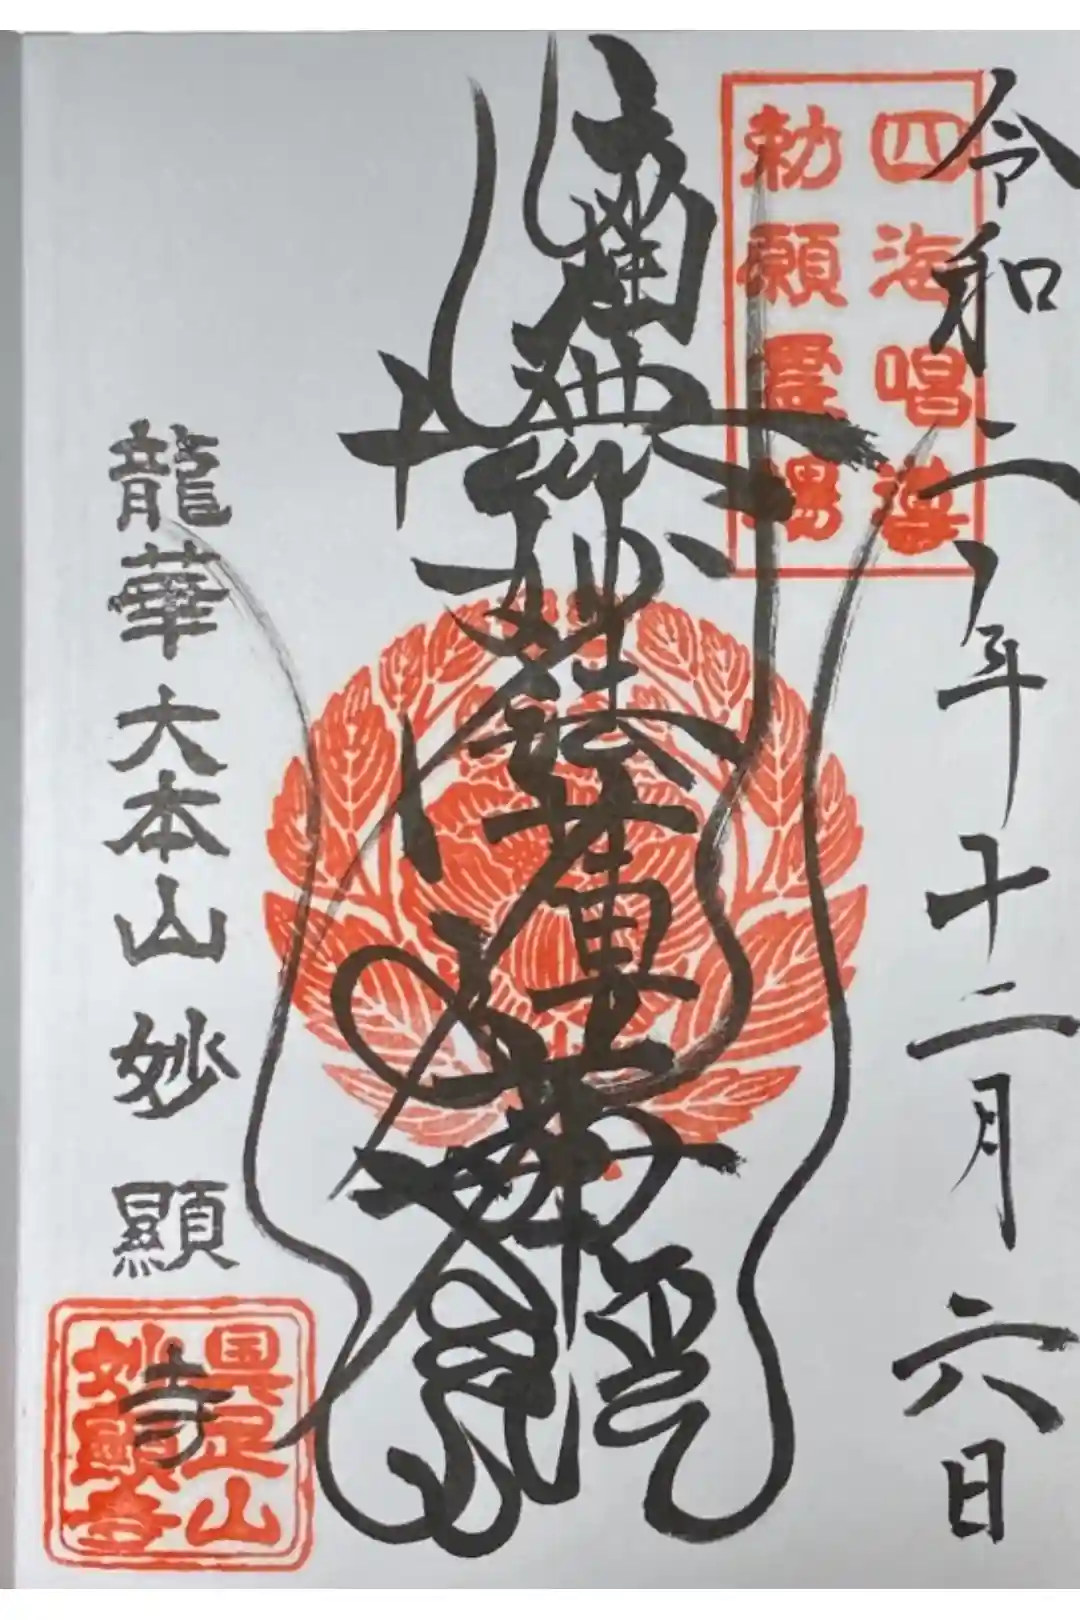 令和二年十二月六日
四海唱導
勅願霊場
南無妙法蓮華経
日蓮
龍華大本山妙顕寺
具足山
妙顕寺